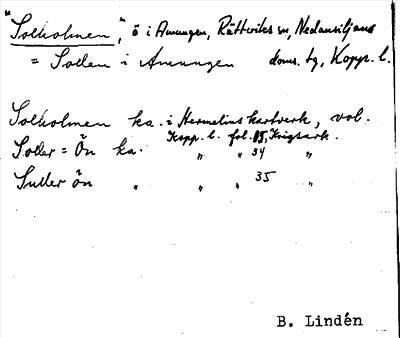 "Solholmen", ö i Amungen, Rättviks sn, Nedansiljans
= Sollen i Amungen doms. tg, Kopp. l.
Solholmen ka. i Hermelins kartverk, vol.
Kopp. l. fol. 85, Krigsark.
Soller = Ön ka. " " 34 "
Suller ön " " " 35 "
B. Lindén